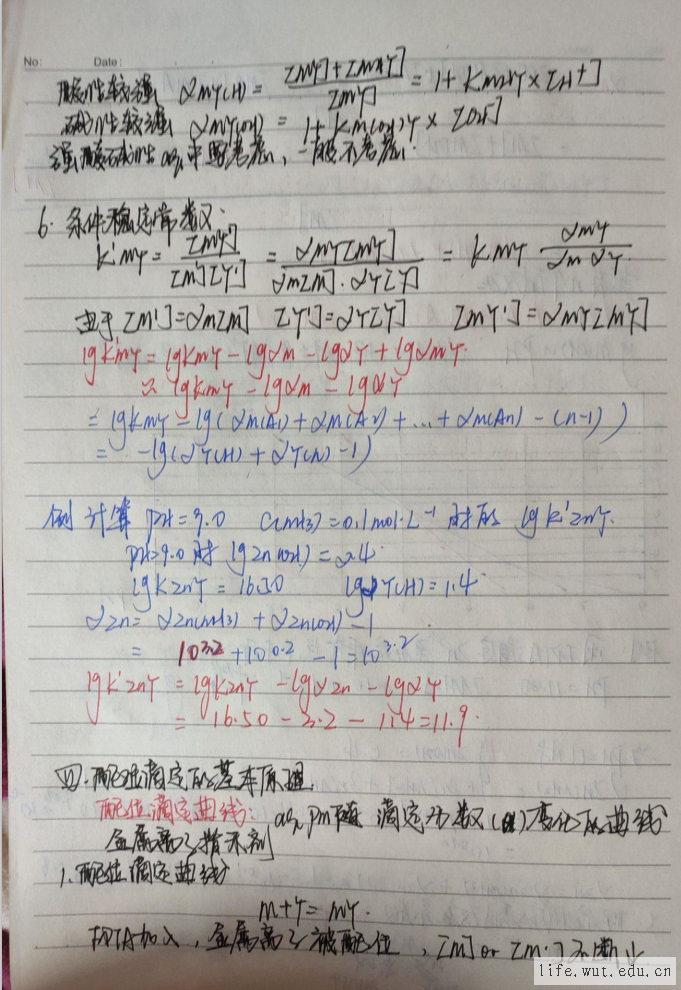 No: Date:
酸性较强 αMY(H) = [MY]+[MHY] / [MY] = 1+KMHY×[H+]
碱性较强 αMY(OH) = 1+KM(OH)Y × [OH]
强酸碱性 aq 中要考虑，一般不考虑.
6. 条件稳定常数:
K'MY = [MY'] / [M'][Y'] = αMY[MY] / αM[M]·αY[Y] = KMY αMY / αM αY
由于 [M']=αM[M] [Y']=αY[Y] [MY']=αMY[MY]
lgK'MY = lgKMY - lgαM - lgαY + lgαMY.
≈ lgKMY - lgαM - lgαY
= lgKMY - lg(αM(A1) + αM(A2) + ... + αM(An) - (n-1))
= -lg(αY(H) + αY(N) - 1)
例 计算 PH=9.0 C(NH3)=0.1mol·L-1 时的 lgK'ZnY.
PH=9.0 时 lgZn(OH)=0.2
lgKZnY = 16.50 lgαY(H)=1.4
αZn = αZn(NH3) + αZn(OH) - 1
= 10^3.2 + 10^0.2 - 1 = 10^3.2
lgK'ZnY = lgKZnY - lgαZn - lgαY
= 16.50 - 3.2 - 1.4 = 11.9.
四. 配位滴定的基本原理.
配位滴定曲线: aq, PM随 滴定分数 变化的曲线
金属离子指示剂
1. 配位滴定曲线
M+Y = MY.
EDTA加入, 金属离子被配位, [M] or [M'] 不断↓
life.wut.edu.cn